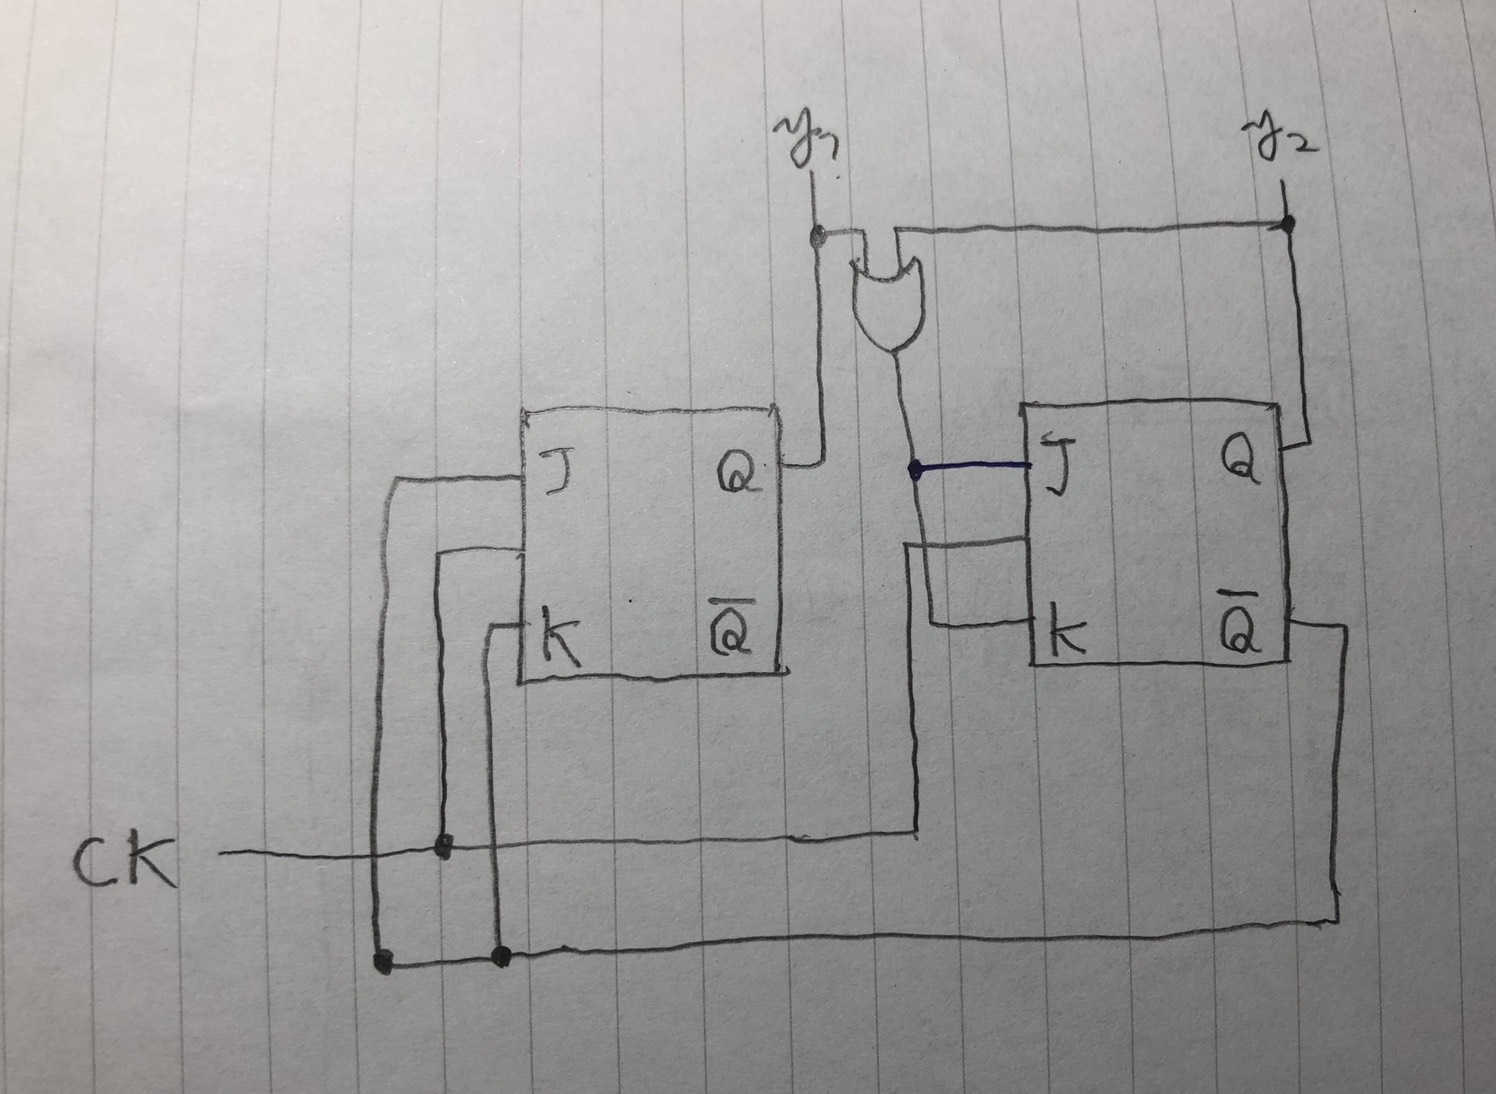 y₁ y₂
J Q J Q
K Q̅ K Q̅
CK